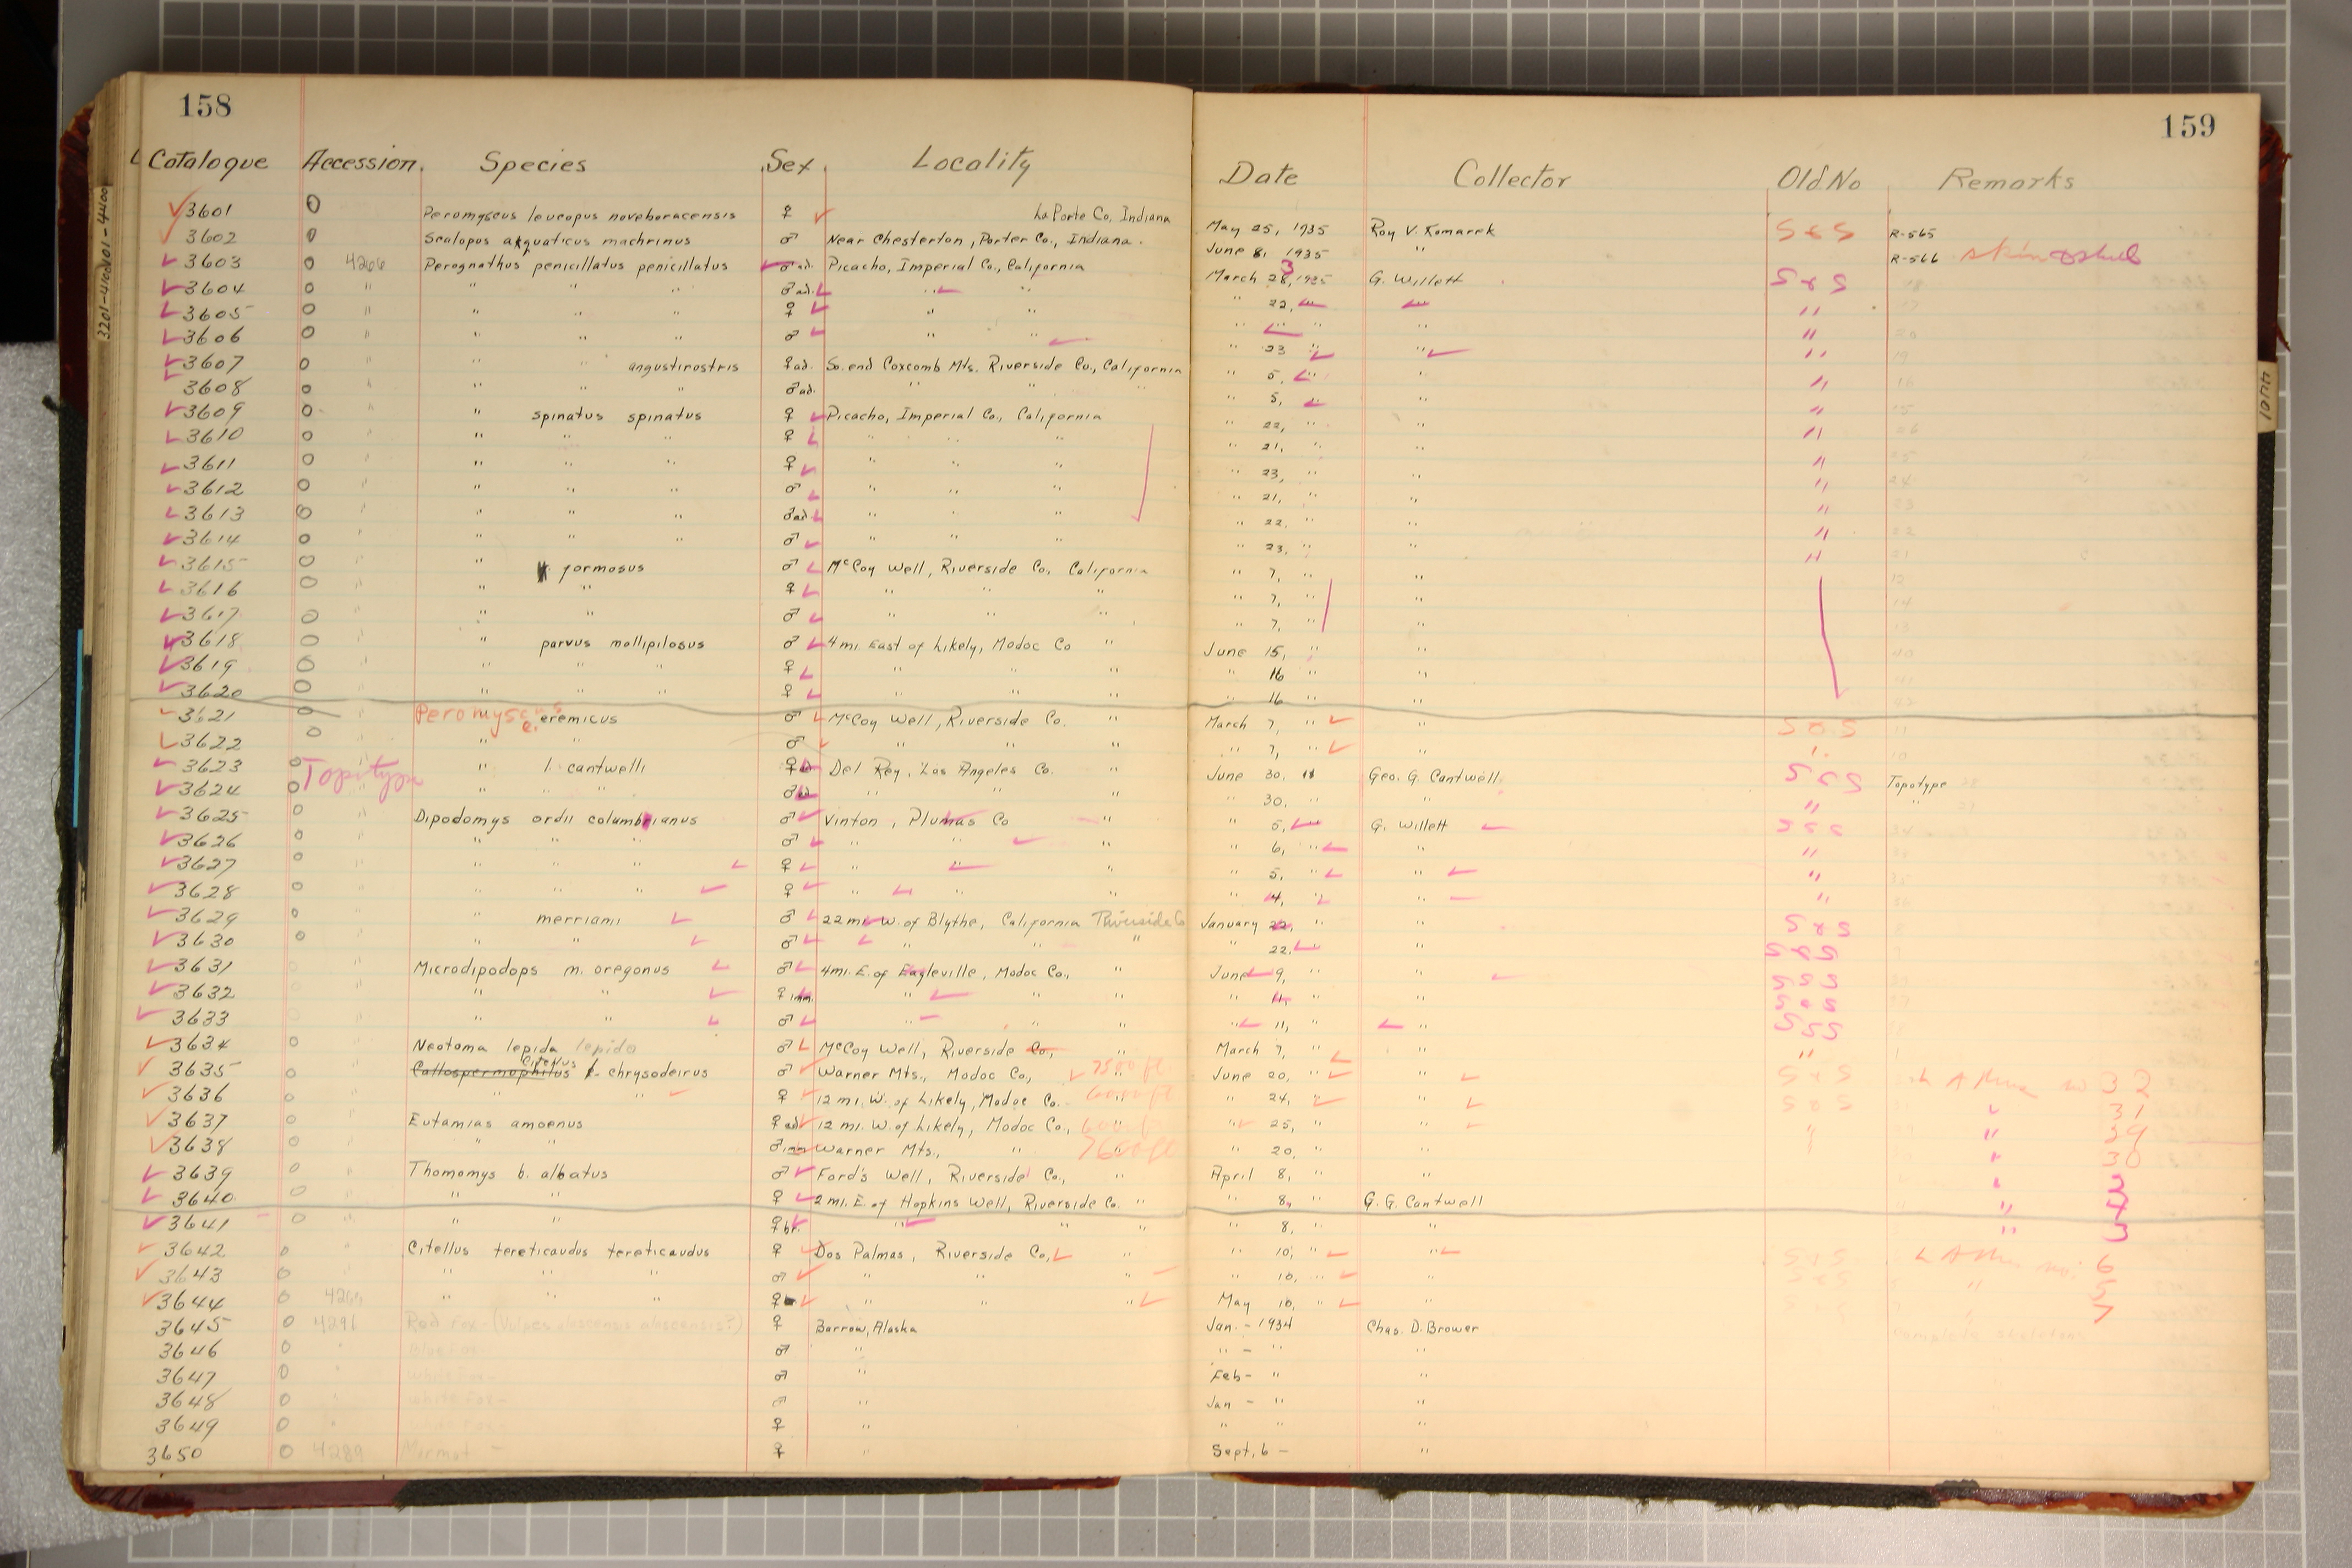 158
159
Catalogue Accession. Species Sex. Locality Date Collector Old No Remarks
3601 0 Peromyscus leucopus noveboracensis ♀ LaPorte Co, Indiana May 25, 1935 Roy V. Komarek S&S R-565
3602 0 Scalopus aquaticus machrinus ♂ Near Chesterton, Porter Co., Indiana. June 8, 1935 " R-566 skin & skull
3603 0 4266 Perognathus penicillatus penicillatus ♂ad. Picacho, Imperial Co., California March 23, 1935 G. Willett S&S
3604 0 " " " " ♂ad. " " " 22, " " " 18
3605 0 " " " " ♀ " " " " " " " 17
3606 0 " " " " ♂ " " " 23 " " " 20
3607 0 " " " angustirostris ♀ad. So. end Coxcomb Mts. Riverside Co., California " 5, " " " 16
3608 0 " " " " ♂ad. " " " " 5, " " " 15
3609 0 " " spinatus spinatus ♀ Picacho, Imperial Co., California " 22, " " " 26
3610 0 " " " " ♀ " " " " 21, " " " 25
3611 0 " " " " ♀ " " " " 23, " " " 24
3612 0 " " " " ♂ " " " " 21, " " " 23
3613 0 " " " " ♂ad " " " " 22. " " " 22
3614 0 " " " " ♂ " " " " 23, " " " 21
3615 0 " " formosus ♂ McCoy Well, Riverside Co., California " 7, " " 12
3616 0 " " " ♀ " " " " 7, " " 14
3617 0 " " " ♂ " " " " 7, " " 13
3618 0 " " parvus mollipilosus ♂ 4 mi. East of Likely, Modoc Co " June 15, " " 40
3619 0 " " " " ♀ " " " " 16 " " 41
3620 0 " " " " ♀ " " " " 16 " " 42
3621 0 Peromyscus e. eremicus ♂ McCoy Well, Riverside Co. " March 7, " " S&S 11
3622 0 " " ♂ " " " " 7, " " " 10
3623 0 Topotype " l. cantwelli ♀ad Del Rey, Los Angeles Co. " June 30, " Geo. G. Cantwell S&S Topotype
3624 0 " " " ♂ad " " " " 30, " " " "
3625 0 " Dipodomys ordii columbianus ♂ Vinton, Plumas Co " " 5, " G. Willett S&S
3626 0 " " " " ♂ " " " " 6, " " "
3627 0 " " " " ♀ " " " " 5, " " "
3628 0 " " " " ♀ " " " " 4, " " "
3629 0 " " merriami ♂ 22 mi. W. of Blythe, California Riverside Co January 22, " " S&S
3630 0 " " " ♂ " " " " 22, " " S&S
3631 0 " Microdipodops m. oregonus ♂ 4 mi. E. of Eagleville, Modoc Co., " June 9, " " S&S
3632 0 " " " ♀ imm. " " " " 11, " " S&S
3633 0 " " " ♂ " " " " 11, " " S&S
3634 0 " Neotoma lepida lepida ♂ McCoy Well, Riverside Co., " March 7, " " "
3635 0 " Callospermophilus Citellus c. chrysodeirus ♂ Warner Mts., Modoc Co., " 7500 ft. June 20, " " S&S L A Mus no 32
3636 0 " " " ♀ 12 mi. W. of Likely, Modoc Co. " 6000 ft " 24, " " S&S " 31
3637 0 " Eutamias amoenus ♀ad 12 mi. W. of Likely, Modoc Co., " " 25, " " " " 29
3638 0 " " " ♂imm Warner Mts., " 7600 ft " 20, " " " " 30
3639 0 " Thomomys b. albatus ♂ Ford's Well, Riverside Co., " April 8, " " "
3640 0 " " " ♀ 2 mi. E. of Hopkins Well, Riverside Co. " " 8, " G. G. Cantwell " 4
3641 0 " " " ♀br. " " " " 8, " " " 3
3642 0 " Citellus tereticaudus tereticaudus ♀ Dos Palmas, Riverside Co, " " 10, " " S&S L A Mus no. 6
3643 0 " " " " ♂ " " " " 10, " " S&S " 5
3644 0 4266 " " " ♀ " " " May 10, " " S&S " 7
3645 0 4291 Red Fox-(Vulpes alascensis alascensis?) ♀ Barrow, Alaska Jan. - 1934 Chas. D. Brower Complete skeleton
3646 0 " Blue Fox- ♂ " " - " "
3647 0 " White Fox- ♂ " Feb- " "
3648 0 " White Fox- ♂ " Jan - " "
3649 0 " White Fox- ♀ " " " "
3650 0 4289 Marmot - ♀ " Sept. 6 - "